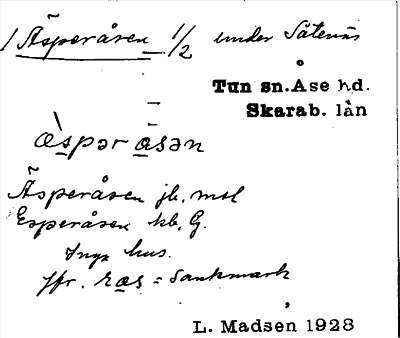 Äsperåsen 1/2 under Såtenäs
Tun sn. Åse hd.
Skarab. län
æ̀spər åsən
Äsperåsen jb, msl
Esperåsen kb, G.
Inga hus.
Jfr. ras = Sankmark
L. Madsen 1928